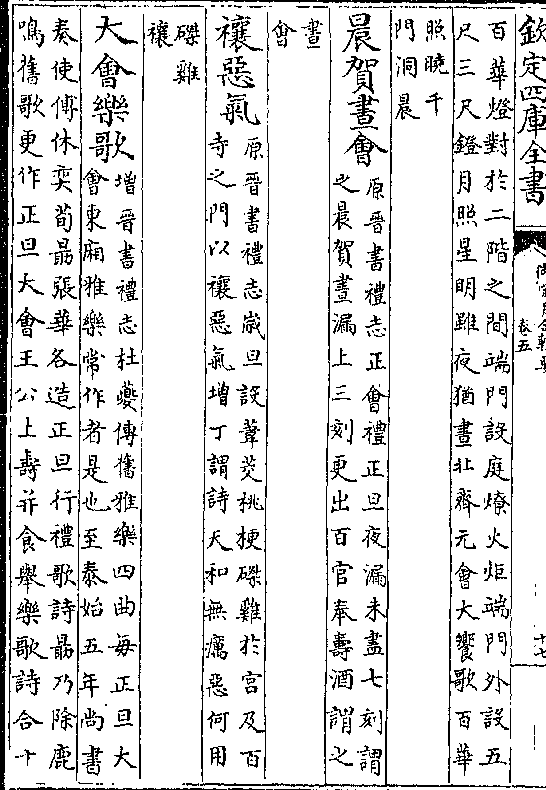 欽定四庫全書
御定月令輯要
卷五
十七
百華燈對於二階之間端門設庭燎火炬端門外設五
尺三尺鐙月照星明雖夜猶晝北齊元會大饗歌百華
照曉千
門洞晨
晨賀晝會
原晉書禮志正會禮正旦夜漏未盡七刻謂
之晨賀晝漏上三刻更出百官奉壽酒謂之
晝
會
禳惡氣
原晉書禮志歲旦設葦茭桃梗磔雞於宮及百
寺之門以禳惡氣增丁謂詩天和無癘惡何用
磔雞
禳
大會樂歌
增晉書禮志杜夔傳舊雅樂四曲每正旦大
會東廂雅樂常作者是也至泰始五年尚書
奏使傅休奕荀勗張華各造正旦行禮歌詩勗乃除鹿
鳴舊歌更作正旦大會王公上壽并食舉樂歌詩合十